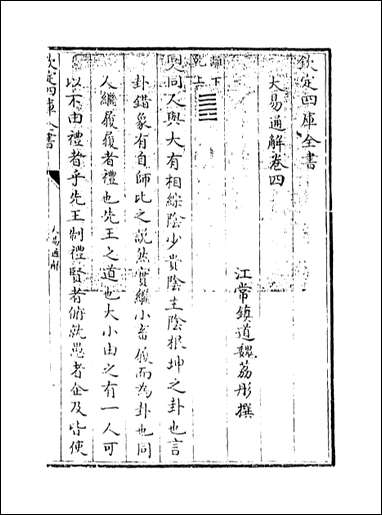 欽定四庫全書
大易通解卷四
江常鎮道魏荔彤撰
離下
乾上
同人與大有相綜陰少貴陰主陰根坤之卦也言
卦錯象有自師比之說焉實繼小畜履而為卦也同
人繼履履者禮也先王之道也大小由之有一人可
以不由禮者乎先王制禮賢者俯就愚者企及皆使
欽定四庫全書
大易通解